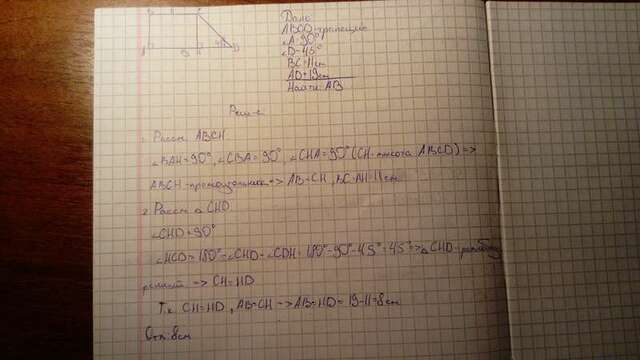 Дано:
ABCD-трапеция
∠A=90°
∠D=45°
BC=11см
AD=19см
Найти: AB
Реш-е
1. Рассм. ABCH
∠BAH=90°, ∠CBA=90°, ∠CHA=90° (CH-высота ABCD) =>
ABCH-прямоугольник => AB=CH, BC=AH=11см
2. Рассм. △ CHD
∠CHD=90°
∠HCD=180°-∠CHD-∠CDH=180°-90°-45°=45° => △ CHD-равнобед
ренный => CH=HD
Т.к. CH=HD, AB=CH => AB=HD=19-11=8см
Отв: 8см